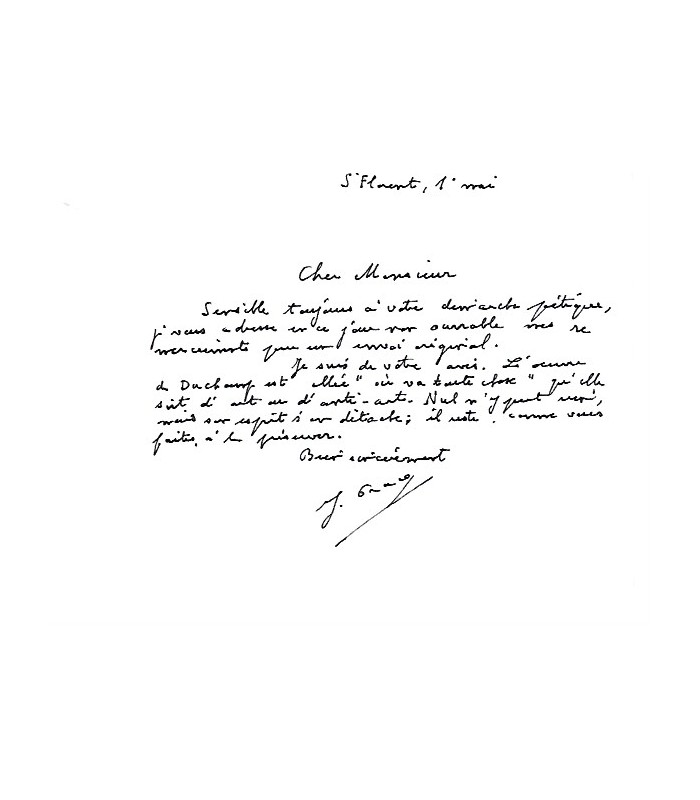 St Florent, 1er mai
Cher Monsieur
Sensible toujours à votre démarche poétique,
j'vous adresse en ce jour non ouvrable mes re
merciements pour un envoi original.
Je suis de votre avis. L'œuvre
de Duchamp est allée "où va toute chose" qu'elle
soit d'art ou d'anti-art. Nul n'y peut rien,
mais son esprit s'en détache; il reste, comme vous
faites, à le préserver.
Bien sincèrement
J.